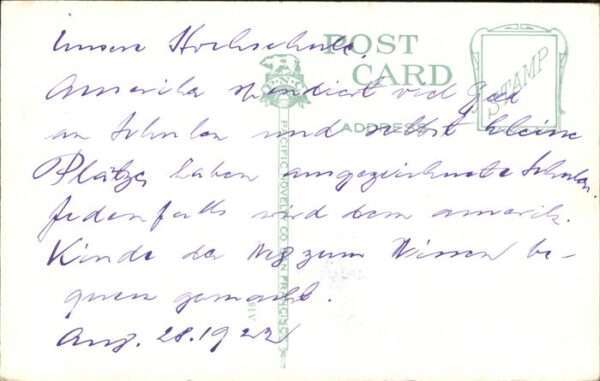 Unsere Hochschule.
POST CARD
STAMP
ADDRESS
Amerika spendiert viel Geld
an Schulen und selbst kleine
Plätze haben ausgezeichnete Schulen.
Jedenfalls wird dem amerik.
Kinde der Weg zum Wissen be-
quem gemacht.
Aug. 28. 1922
PACIFIC NOVELTY CO. SAN FRANCISCO